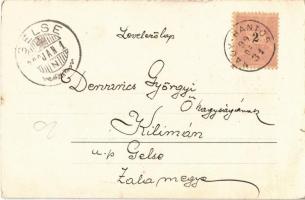 GELSE
JAN
2
Levelezőlap
Györgyi
Őnagyságának
Kilimán
u.p Gelse
Zala megye